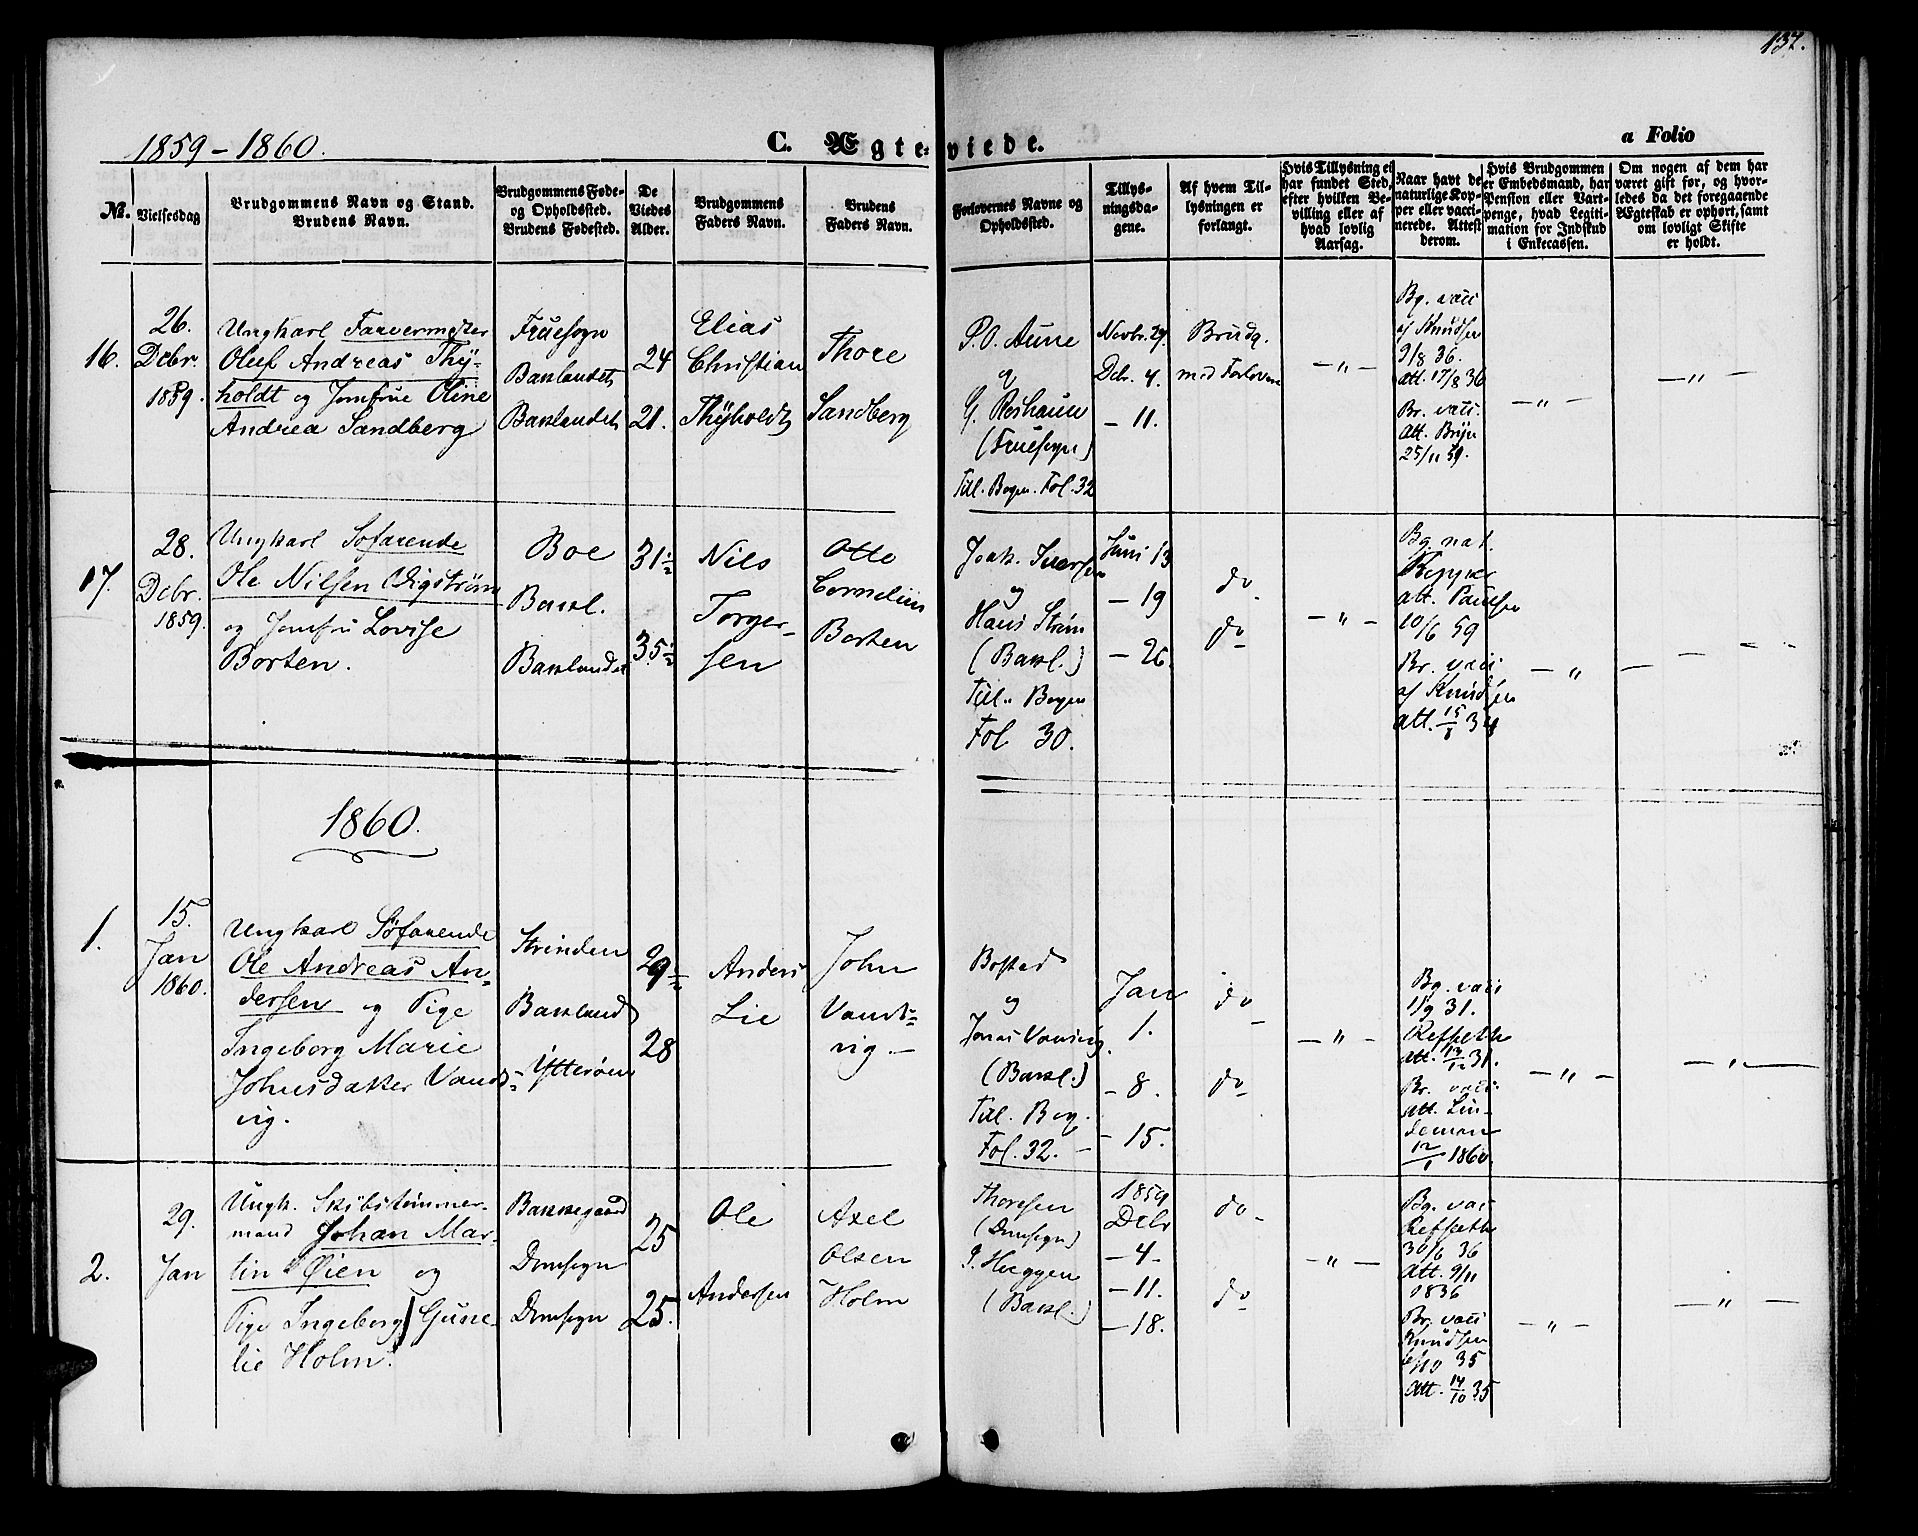 137.
1859 - 1860.
C. Ægteviede.
a Folio
No.
Vielsesdag
Brudgommens Navn og Stand.
Brudens Navn.
Brudgommens Føde-
og Opholdssted.
Brudens Fødested.
De
Viedes
Alder.
Brudgommens
Faders Navn.
Brudens
Faders Navn.
Forlovernes Navne og
Opholdssted.
Tillys-
ningsda-
gene.
Af hvem Til-
lysningen er
forlangt.
Hvis Tillysning ei
har fundet Sted,
efter hvilken Be-
villing eller af
hvad lovlig
Aarsag.
Naar havt de
naturlige Kop-
per eller vacci-
nerede. Attest
derom.
Hvis Brudgommen
er Embedsmand, har
Pension eller Vart-
penge, hvad Legiti-
mation for Indskud
i Enkecassen.
Om nogen af dem har
været gift før, og hvor-
ledes da det foregaaende
Ægteskab er ophørt, samt
om lovligt Skifte
er holdt.
16.
26.
Dcbr.
1859.
Ungkarl Farvermester
Oluf Andreas Thy-
holdt og Jomfrue Oline
Andrea Sandberg
Fruesogn
Baklandet
Baklandet
24
21.
Elias
Christian
Thyholdt
Thore
Sandberg
P. O. Aune
og
G. Roshaun
(Fruesogn)
Till. Bogen. Fol. 32
Novbr. 27.
Dcbr. 4.
- 11.
Brudg.
med Forlovere
- " -
Bg. vacc
af Knudsen
9/8 36.
Att. 17/8 36
Br. vacc.
Att. Bryn
25/11 59.
- " -
- " -
17.
28.
Dcbr.
1859.
Ungkarl Søfarende
Ole Nilsen Vigstrøm
og Jomfru Lovise
Borten.
Boe
Bakl.
Baklandet
31½
35½
Nils
Torger-
sen
Otto
Cornelius
Borten
Joak. Iversen
og
Hans Strøm
(Bakl.)
Till. Bogen
Fol 30.
Juni 13
- 19
- 26.
do
do
- " -
Bg. nat.
Kopper
att. Paulsen
10/6 59
Br. vacc
af Knudsen
att. 15/8 34
- " -
1860.
1.
15.
Jan
1860.
Ungkarl Søfarende
Ole Andreas An-
dersen og Pige
Ingeborg Marie
Johnsdatter Vands-
vig.
Strinden
Bakland
Ytterøen
29½
28
Anders
Lie
John
Vands-
vig -
Bostad
og
Jonas Vansvig
(Bakl.)
Till. Bog.
Fol. 32. -
Jan
1.
- 8.
- 15.
do
do
- " -
Bg. vacc
11/9 31.
Refseth
att. 13/12 31.
Br. vacc.
att. Lin-
deman
12/1 1860.
- " -
- " -
2.
29.
Jan
Ungk. Skibstømmer-
mand Johan Mar-
tin Øien og
Pige Ingeborg Gune-
lie Holm.
Bakkegaard
Domsogn
Domsogn
25
25.
Ole
Andersen
Axel
Olsen
Holm
Thoresen
(Domsogn)
P. Hoeggen
(Bakl.)
1859
Dcbr
- 4.
- 11.
- 18.
do
do
- " -
Bg. vacc
Refseth
30/6 36
Att. 9/11
1836
Br. vacc
Knudsen
35
Att. 14/10 35
- " -
- " -